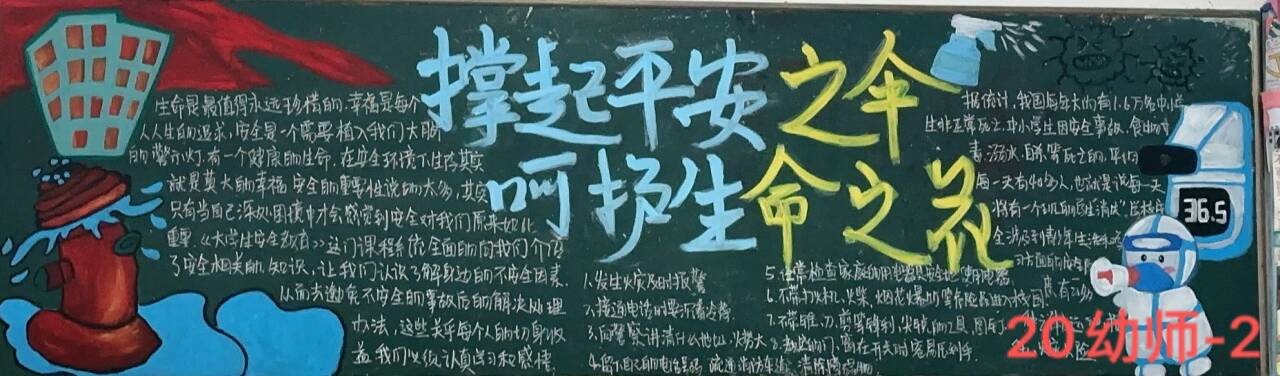 撑起平安之伞
呵护生命之花
生命是最值得永远珍惜的,幸福是每个
人人生的追求,安全是一个需要植入我们大脑
的警示灯.有一个健康的生命,在安全环境下生活其实
就是莫大的幸福.安全的重要性说明太多,其实
只有当自己深处困境中才会感觉到安全对我们原来如此
重要.《大学生安全教育》这门课程系统全面的向我们介绍
了安全相关的知识,让我们认识了解身边的不安全因素.
从而去避免不安全的事故后的解决处理
办法,这些关乎每个人的切身收
益我们必须认真学习和感悟.
1.发生火灾及时报警
2.接通电话
3.向警察讲清什么地址,火势大
4.留下自己的电话号码 疏通消防车道,清除障碍物
5.经常检查家庭的用电器具安全地使用电器
6.不带打火机、火柴、烟花爆竹等危险品进入校园
7.不带锥、刀、剪等锋利、尖锐的工具
的门,窗在开关时容易压到手.
据统计,我国每年大约有1.6万名中小
生非正常死亡.中小学生因安全事故、食物中
毒、溺水、自杀等死亡的,平均
每一天有40多人,也就是说每一天
将有一个班的学生"消失"
36.5
20幼师-2